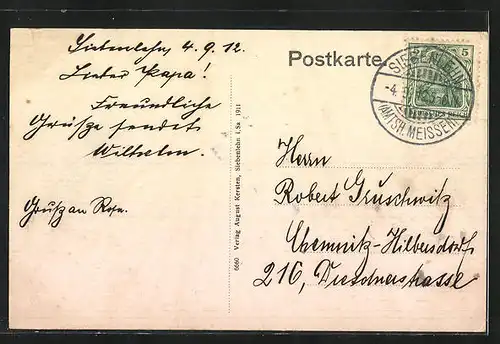 Siebenlehn, 4.9.12.
Lieber Papa!
Freundliche
Grüße sendet
Wilhelm.
Gruß an Rose.
6660 Verlag August Kersten, Siebenlehn i.Sa. 1911
Postkarte
5 5
SIEBENLEHN
-4.
(AMTSH. MEISSEN)
Herrn
Robert Gruschwitz
Chemnitz-Hilbersdorf
216, Dresdnerstrasse